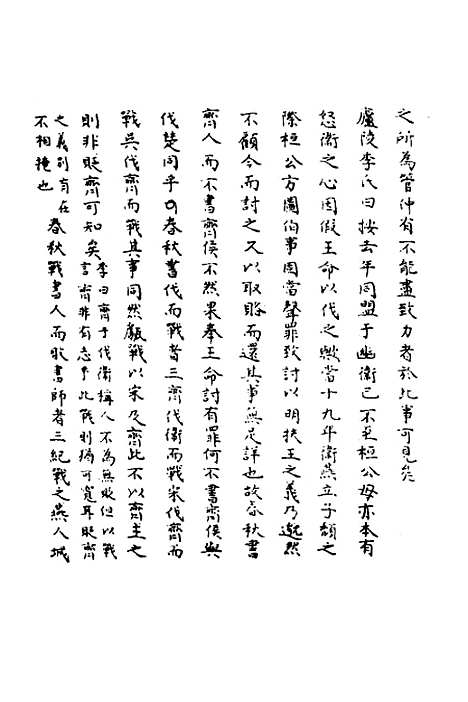 之所為管仲有不能盡致力者於此事可見矣
廬陵李氏曰按去年同盟于幽衛已不至桓公毋亦本有
怒衛之心因假王命以伐之歟當十九年衛燕立子頽之
際桓公方圖伯事固當聲罪致討以明扶王之義乃邈然
不顧今而討之又以取賂而還其事無足詳也故春秋書
齊人而不書齊侯不然果奉王命討有罪何不書齊侯與
伐楚同乎○春秋書伐而戰者三齊伐衛而戰宋伐齊而
戰吳伐齊而戰其事同然甗戰以宋及齊此不以齊主之
則非貶齊可知矣
李曰齊于伐衛稱人不為無貶但以戰
言齊非有志乎此戰則猶可寬耳貶齊
之義則有在
不相掩也
春秋戰書人而敗書師者三紀戰之燕人城